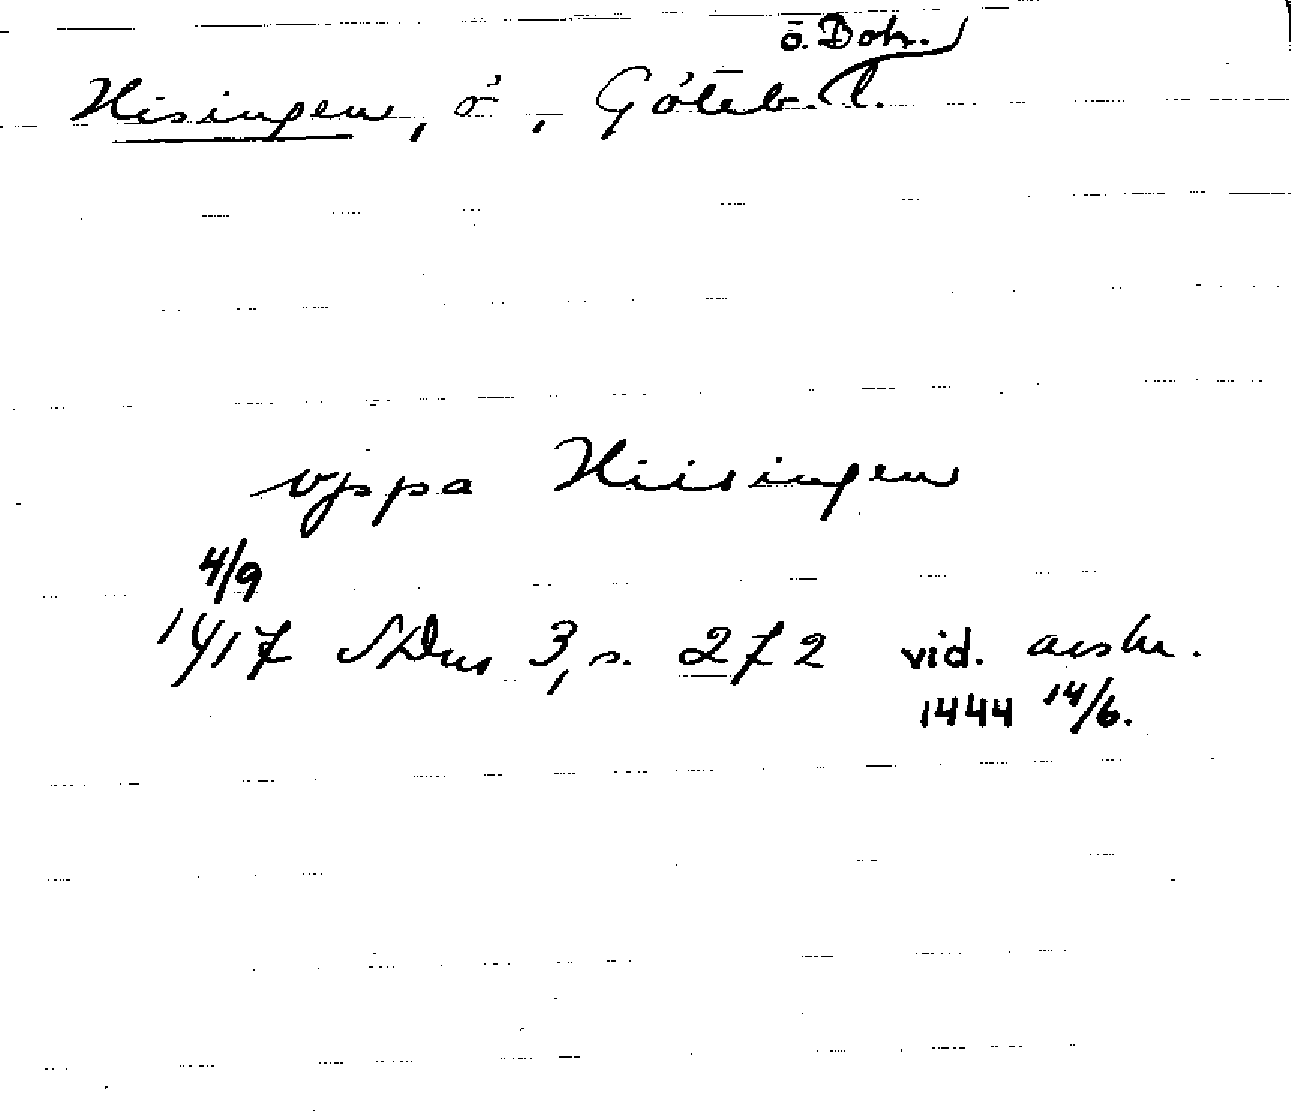 o. Boh.
Hisingen, ö, Göteb. l.
vppa Hiisingen
4/9
1417 SDns 3, s. 272 vid. avskr.
1444 14/6.